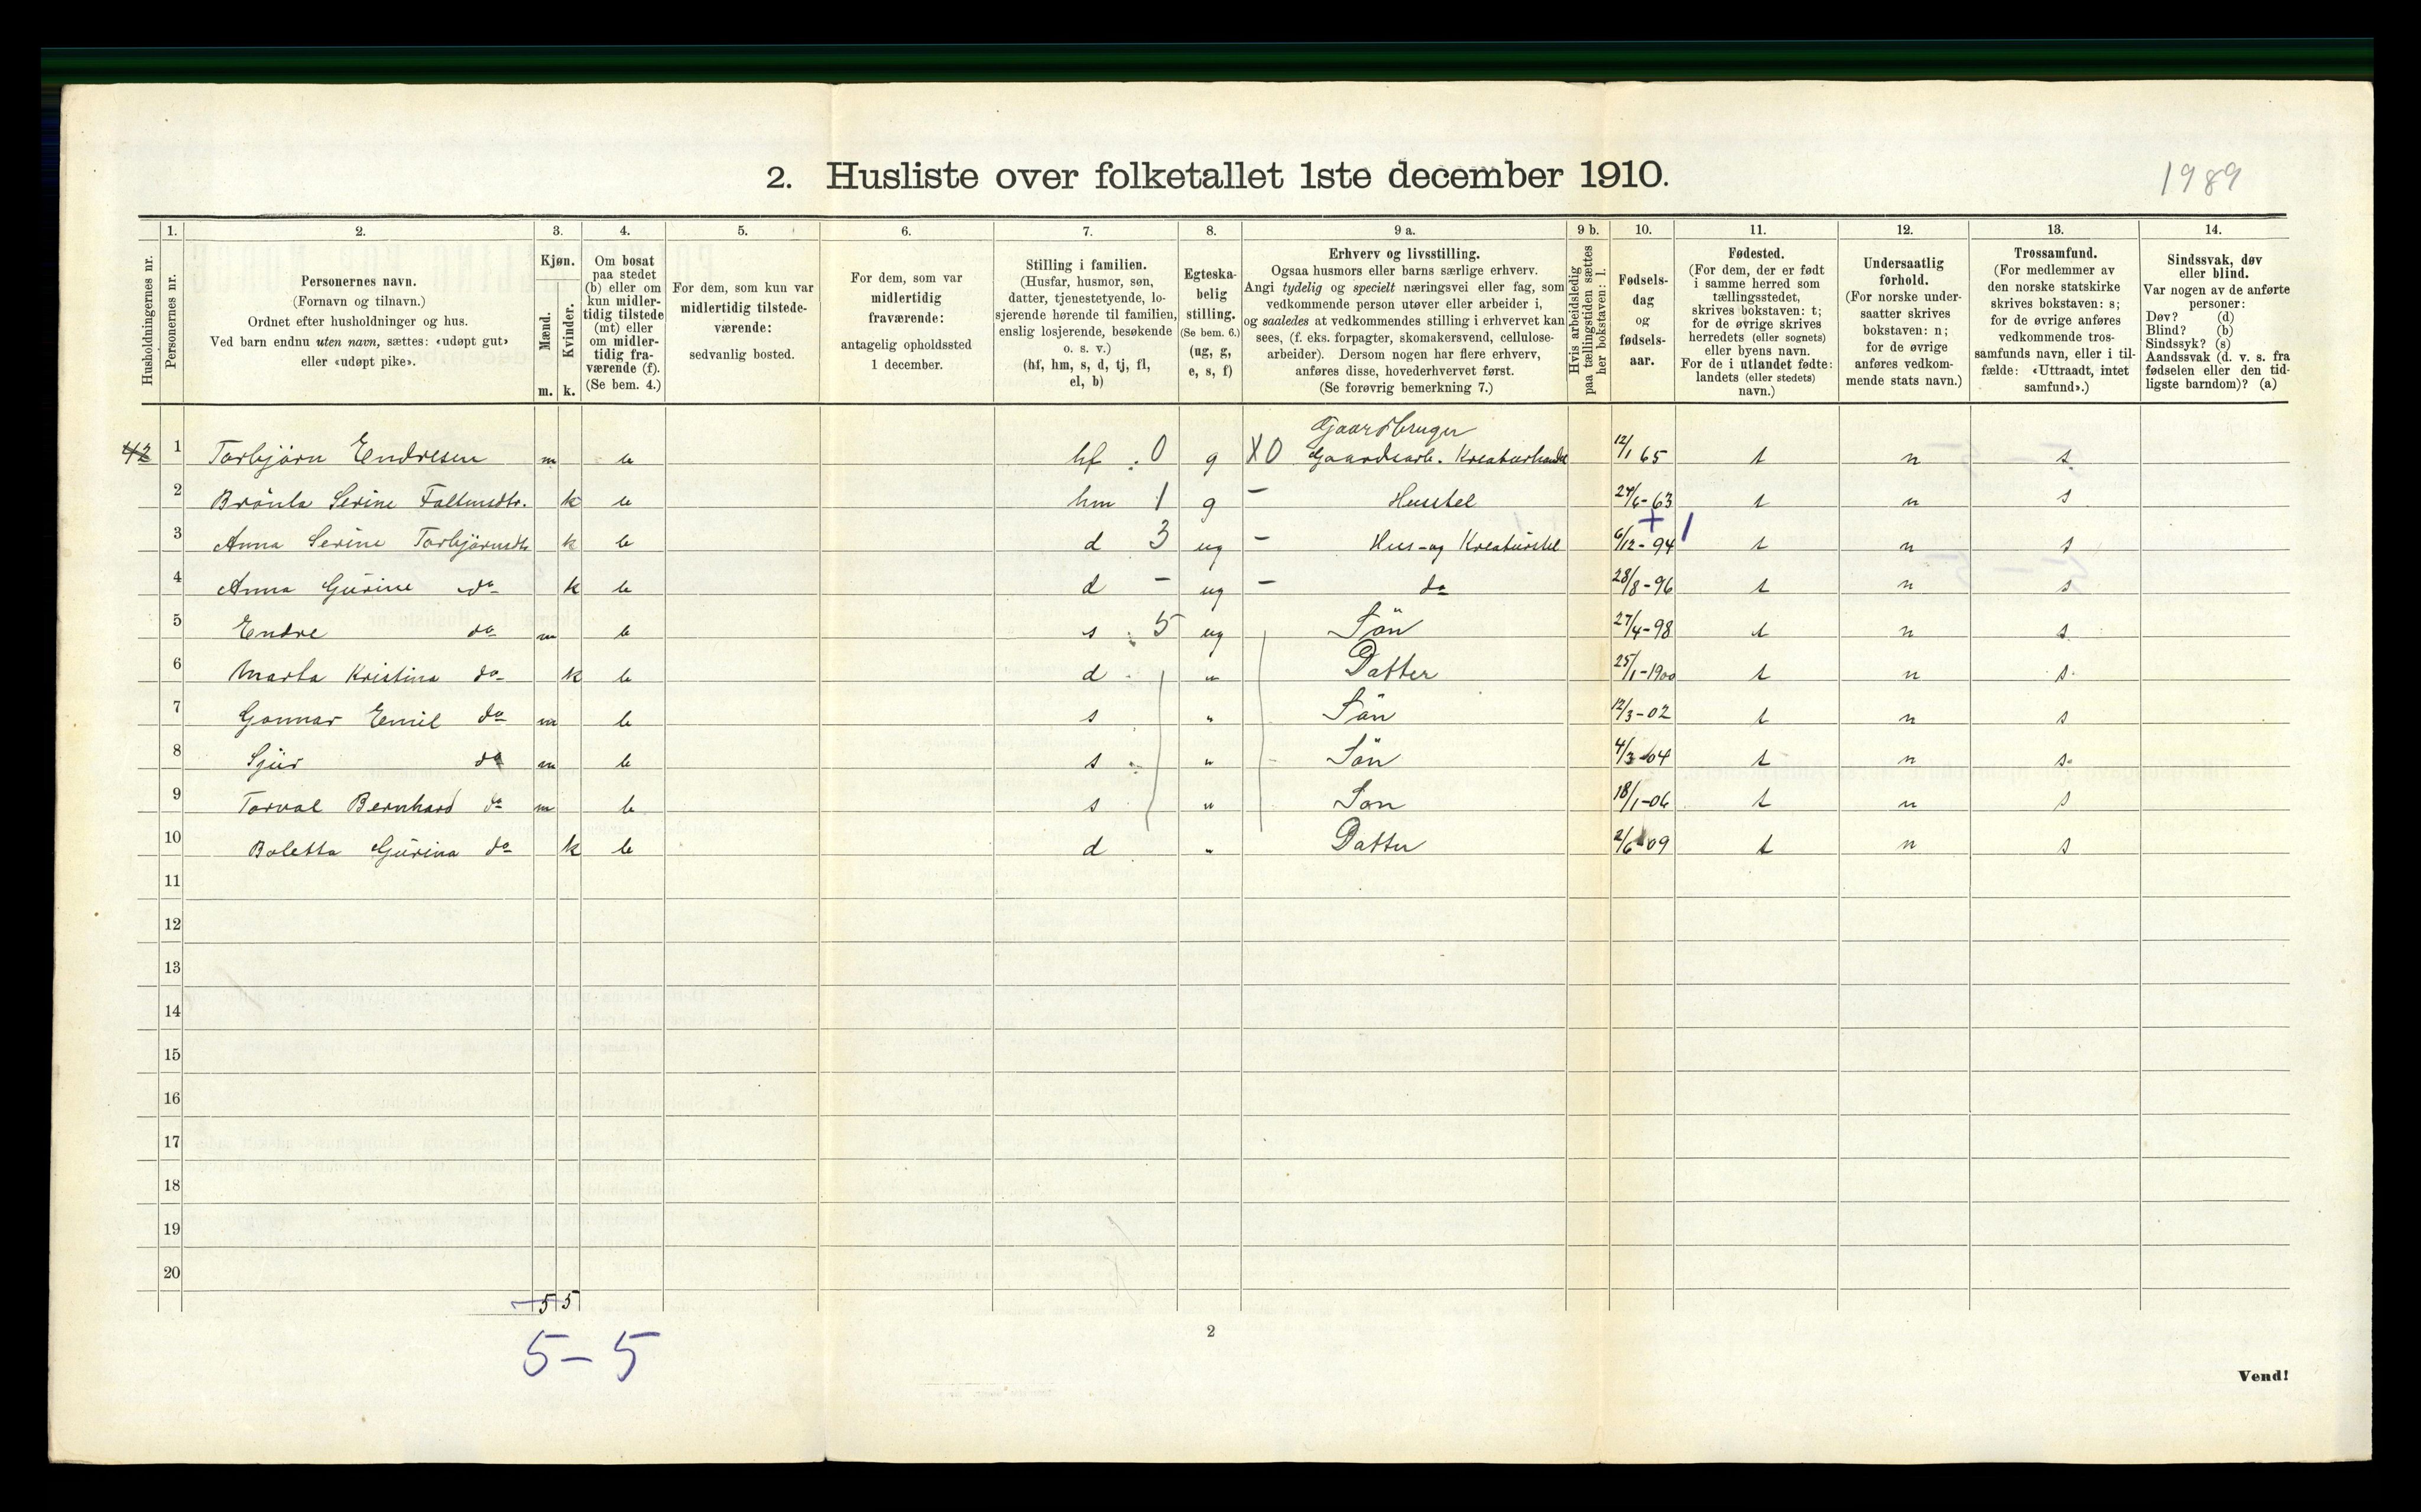 2. Husliste over folketallet 1ste december 1910.
1989
Husholdningernes nr.
1. Personernes nr.
2. Personernes navn.
(Fornavn og tilnavn.)
Ordnet efter husholdninger og hus.
Ved barn endnu uten navn, sættes: «udøpt gut»
eller «udøpt pike».
3. Kjøn.
Mænd. Kvinder.
m. k.
4. Om bosat
paa stedet
(b) eller om
kun midler-
tidig tilstede
(mt) eller
om midler-
tidig fra-
værende (f).
(Se bem. 4.)
5. For dem, som kun var
midlertidig tilstede-
værende:
sedvanlig bosted.
6. For dem, som var
midlertidig
fraværende:
antagelig opholdssted
1 december.
7. Stilling i familien.
(Husfar, husmor, søn,
datter, tjenestetyende, lo-
sjerende hørende til familien,
enslig losjerende, besøkende
o. s. v.)
(hf, hm, s, d, tj, fl,
el, b)
8. Egteska-
belig
stilling.
(Se bem. 6.)
(ug, g,
e, s, f)
9 a. Erhverv og livsstilling.
Ogsaa husmors eller barns særlige erhverv.
Angi tydelig og specielt næringsvei eller fag, som
vedkommende person utøver eller arbeider i,
og saaledes at vedkommendes stilling i erhvervet kan
sees, (f. eks. forpagter, skomakersvend, cellulose-
arbeider). Dersom nogen har flere erhverv,
anføres disse, hovederhvervet først.
(Se forøvrig bemerkning 7.)
9 b. Hvis arbeidsledig
paa tællingstiden sættes
her bokstaven: l.
10. Fødsels-
dag
og
fødsels-
aar.
11. Fødested.
(For dem, der er født
i samme herred som
tællingsstedet,
skrives bokstaven: t;
for de øvrige skrives
herredets (eller sognets)
eller byens navn.
For de i utlandet fødte:
landets (eller stedets)
navn.)
12. Undersaatlig
forhold.
(For norske under-
saatter skrives
bokstaven: n;
for de øvrige
anføres vedkom-
mende stats navn.)
13. Trossamfund.
(For medlemmer av
den norske statskirke
skrives bokstaven: s;
for de øvrige anføres
vedkommende tros-
samfunds navn, eller i til-
fælde: «Uttraadt, intet
samfund».)
14. Sindssvak, døv
eller blind.
Var nogen av de anførte
personer:
Døv? (d)
Blind? (b)
Sindssyk? (s)
Aandssvak (d. v. s. fra
fødselen eller den tid-
ligste barndom)? (a)
Gaardbruger
42 1 Torbjörn Endresen m b hf 0 g X0 Gaardsarb. Kreaturhandel 12/1 65 t n s
2 Brönla Serine k b hm 1 g - Husstel 24/6-63 t n s
3 Anna Serine Torbjörnsdtr k b d 3 ug - Hus- og Kreaturstel 6/12-94 t n s
4 Anna Gurine do k b d - ug - do 28/8-96 t n s
5 Endre do m b s 5 ug Sön 27/4-98 t n s
6 Marta Kristina do k b d " Datter 25/1-1900 t n s
7 Gonnar Emil do m b s " Sön 12/3-02 t n s
8 Sjur do m b s " Sön 4/3-04 t n s
9 Torval Bernhard do m b s " Son 18/1-06 t n s
10 Boletta Gurina do k b d " Datter 2/6 09 t n s
11
12
13
14
15
16
17
18
19
20
5 5
5-5
2
Vend!